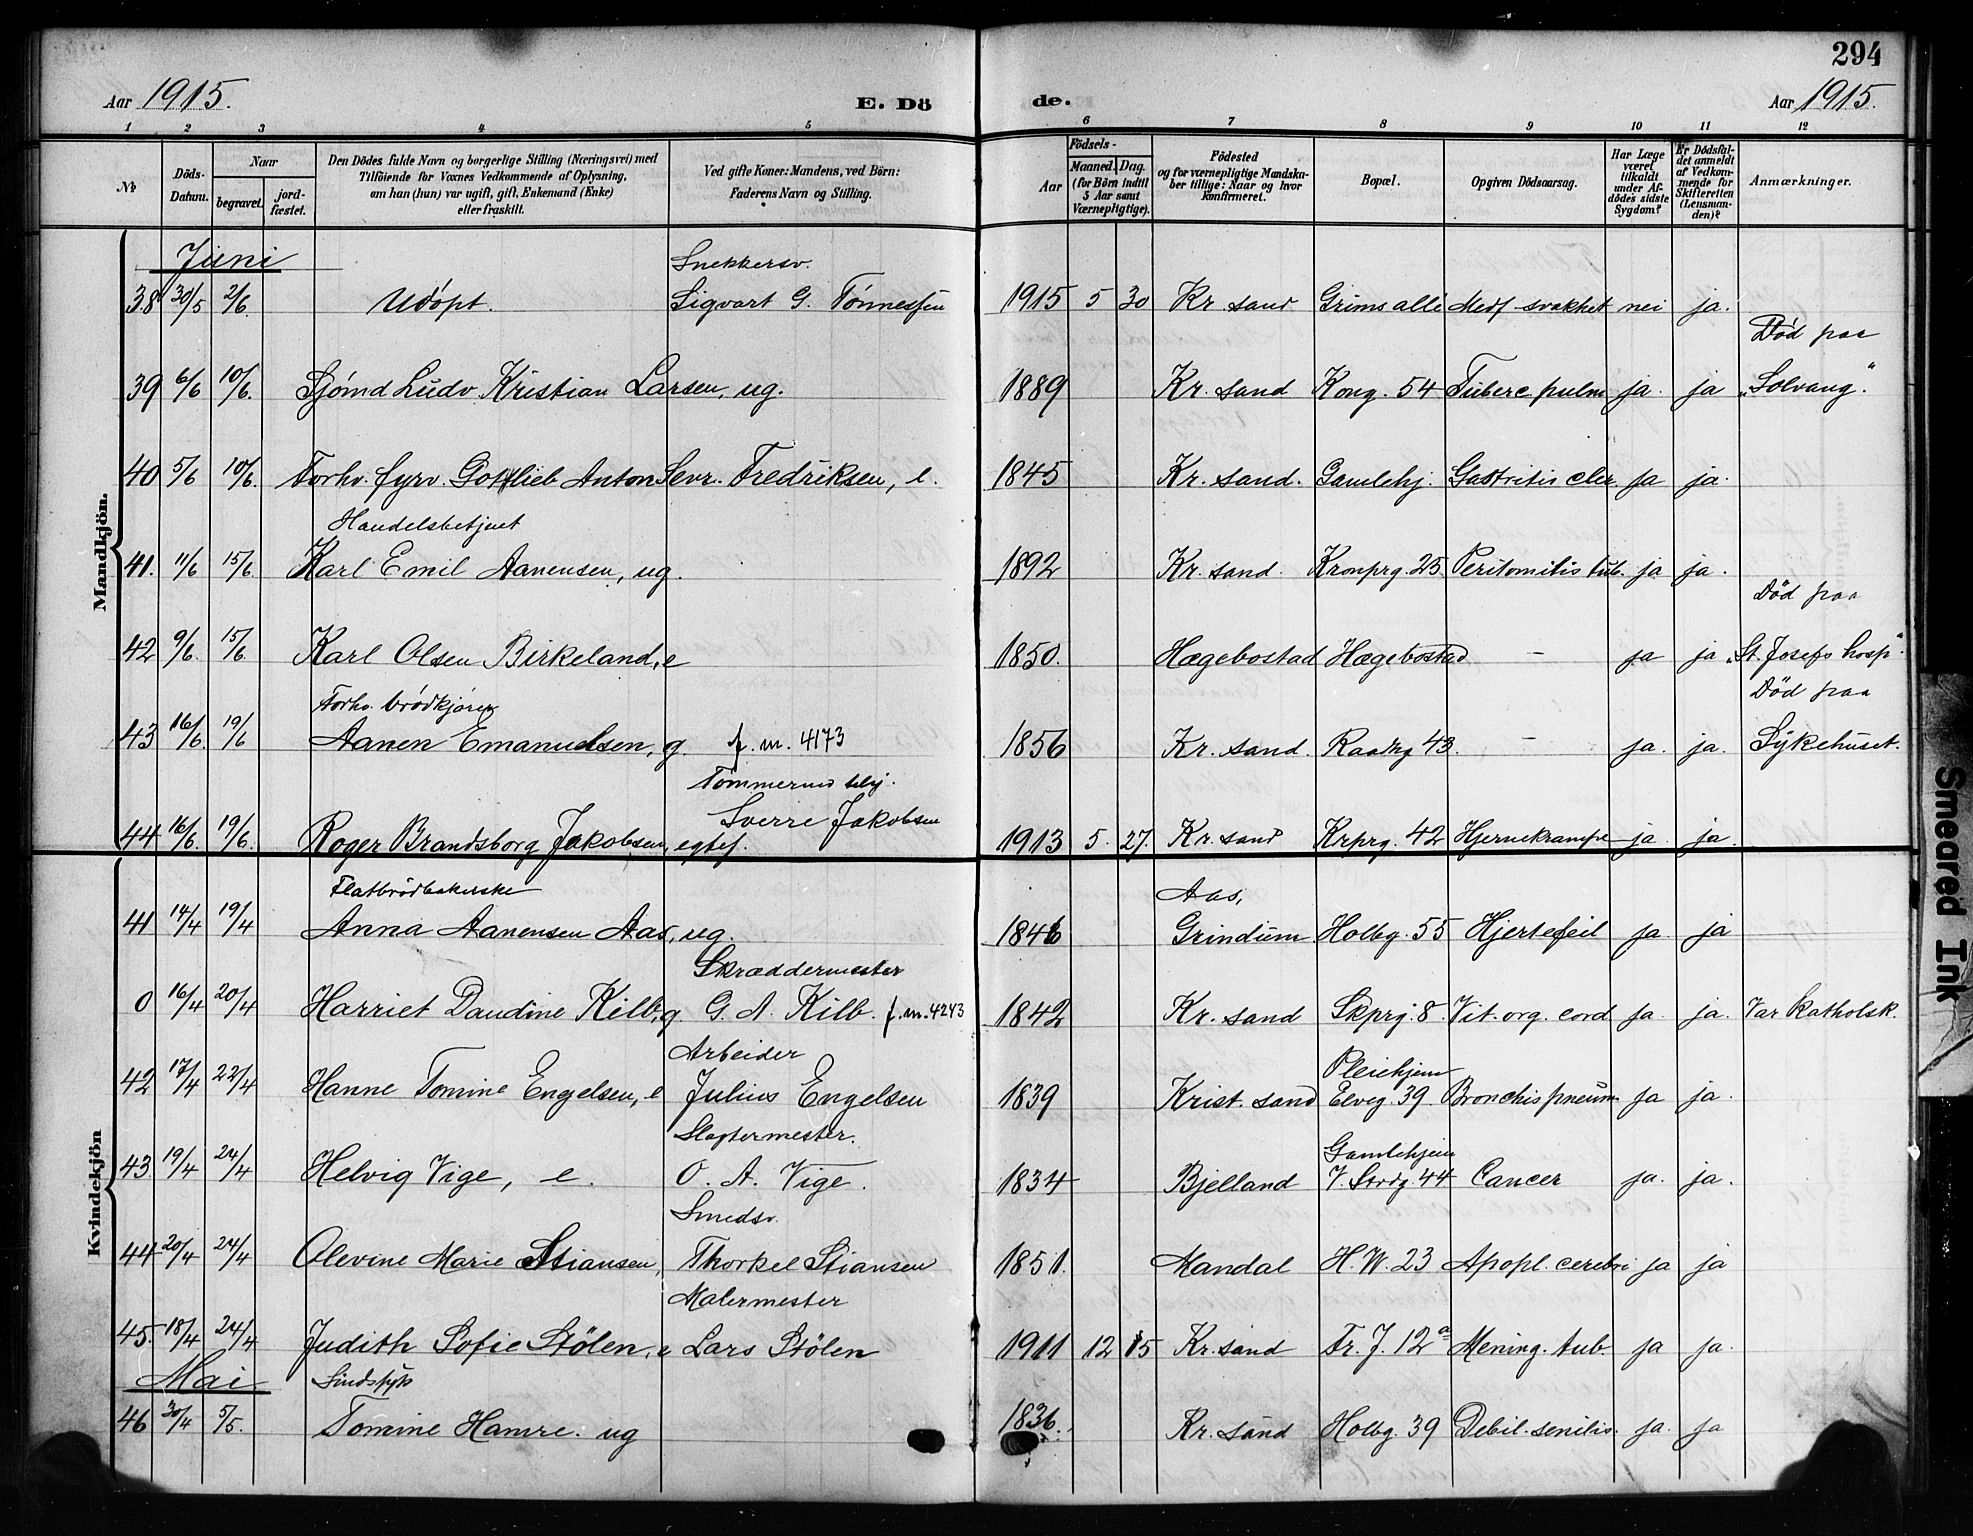 294
Aar 1915. E. Dö de. Aar 1915.
1 2 3 4 5 6 7 8 9 10 11 12
No Döds-Datum. Naar begravet. jordfæstet. Den Dödes fulde Navn og borgerlige Stilling (Næringsvei) med Tilföiende for Voxnes Vedkommende af Oplysning, om han (hun) var ugift, gift, Enkemand (Enke) eller fraskilt. Ved gifte Koner: Mandens, ved Börn: Faderens Navn og Stilling. Födsels- Aar Maaned. Dag. (for Börn indtil 5 Aar samt Værnepligtige). Födested og for værnepligtige Mandskaber tillige: Naar og hvor konfirmeret. Bopæl. Opgiven Dödsaarsag. Har Læge været tilkaldt under Afdödes sidste Sygdom? Er Dödsfaldet anmeldt af Vedkommende for Skifteretten (Lensmanden)? Anmærkninger.
Mandkjön.
Juni Snekkersv.
38 30/5 2/6. Udöpt. Sigvart G. Tönnessen 1915 5 30 Kr. sand Grims allé Medf. svakhet nei ja.
Död paa
39 6/6 10/6. Sjömd Ludv. Kristian Larsen, ug. 1889 Kr. sand Kong. 54 Tuberc. pulm ja. ja „Solvang."
40 5/6 10/6. Forhv. fyrv. Gottlieb Anton Sevr. Fredriksen, e. 1845 Kr. sand. Gamlehj. Gastritis ja ja.
Handelsbetjent
41. 11/6 15/6. Karl Emil Aanensen, ug. 1892 Kr. sand. Kronprg. 25. Peritonitis tub. ja ja.
Död paa
42 9/6. 15/6. Karl Olsen Birkeland, e 1850. Hægebostad Hægebostad - ja ja „St. Josefs hosp".
Forhv. brödkjörer Död paa
43 16/6. 19/6 Aanen Emanuelsen, g f. m. 4173 1856 Kr. sand. Raadhg 43. - ja. ja. Sykehuset.
Tömmermd
Sverre Jakobsen
44 16/6. 19/6. Roger Brandsborg Jakobsen, egtef. 1913 5. 27. Kr. sand Krprg. 42 Hjernekrampe ja. ja.
Kvindekjön
Flatbrödbakerske Aas,
41 14/4 19/4 Anna Aanensen Aas, ug. 1846 Grindum Holbg. 55 Hjertefeil ja. ja
Skræddermester
0 16/4 20/4 Harriet Daudine Kilb, g. G. A. Kilb. f. m. 4243 1842 Kr. sand Skprg. 8. Vit. org. cord ja. ja. Var katholsk.
Arbeider Pleiehjem
42 17/4 22/4 Hanne Tomine Engelsen, e Julius Engelsen 1839 Krist. sand Elveg 39. Bronchis pneum. ja ja.
Slagtermester. Gamlehjem
43. 19/4 24/4 Helvig Vige, e. O. A. Vige. 1834 Bjelland V. Strdg 44 Cancer ja. ja.
Smedsv.
44 20/4 24/4 Olevine Marie Stiansen, Thorkel Stiansen 1851. Mandal H. W. 23 Apopl. cerebri ja ja
Malermester
45. 18/4 24/4 Judith Sofie Stölen, Lars Stölen 1911 12 15 Kr. sand Fr. J. 12 a Mening. tub. ja ja.
Mai Sindssyk
46 30/4 5/5. Tomine Hamre. ug 1836. Kr. sand Holbg. 39 Debil. senilis. ja. ja
Smeared Ink